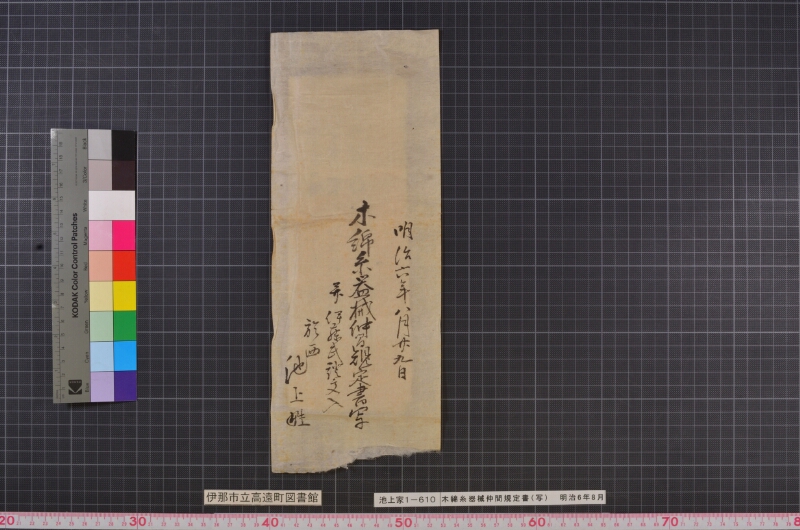 明治六年八月廿九日
木綿糸器械仲間規定書写
池上
伊那市立高遠町図書館
池上家1－610 木綿糸器械仲間規定書(写) 明治6年8月
KODAK Color Control Patches
Black
White
Magenta
Red
Yellow
Green
Cyan
Blue
20
30
40
50
60
70